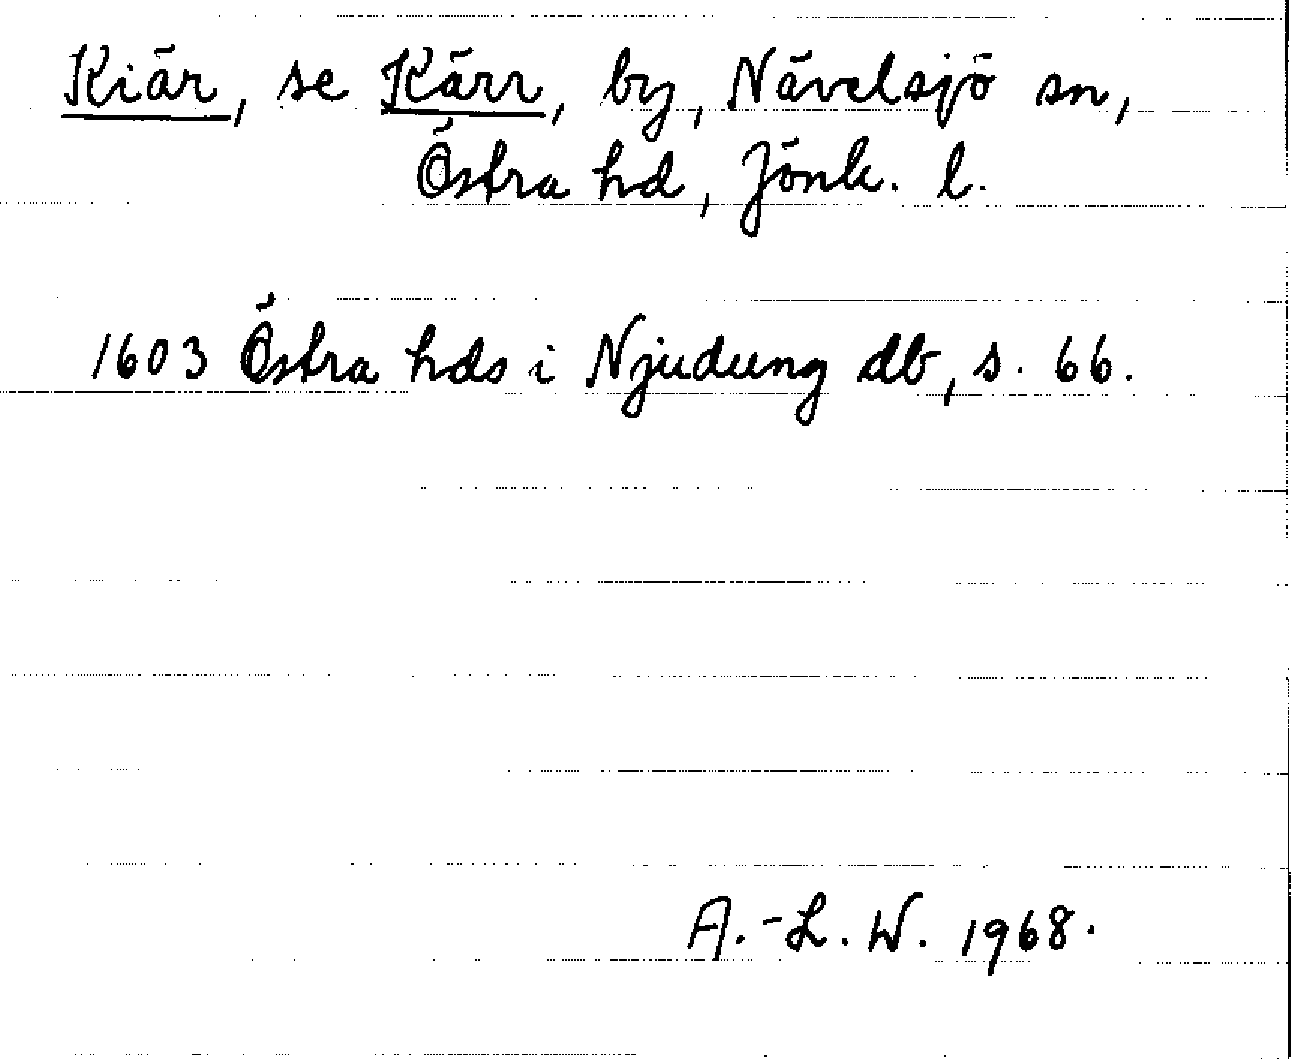 Kiär, se Kärr, by, Nävelsjö sn,
Östra hd, Jönk. l.
1603 Östra hds i Njudung db, s. 66.
A.-L. W. 1968.